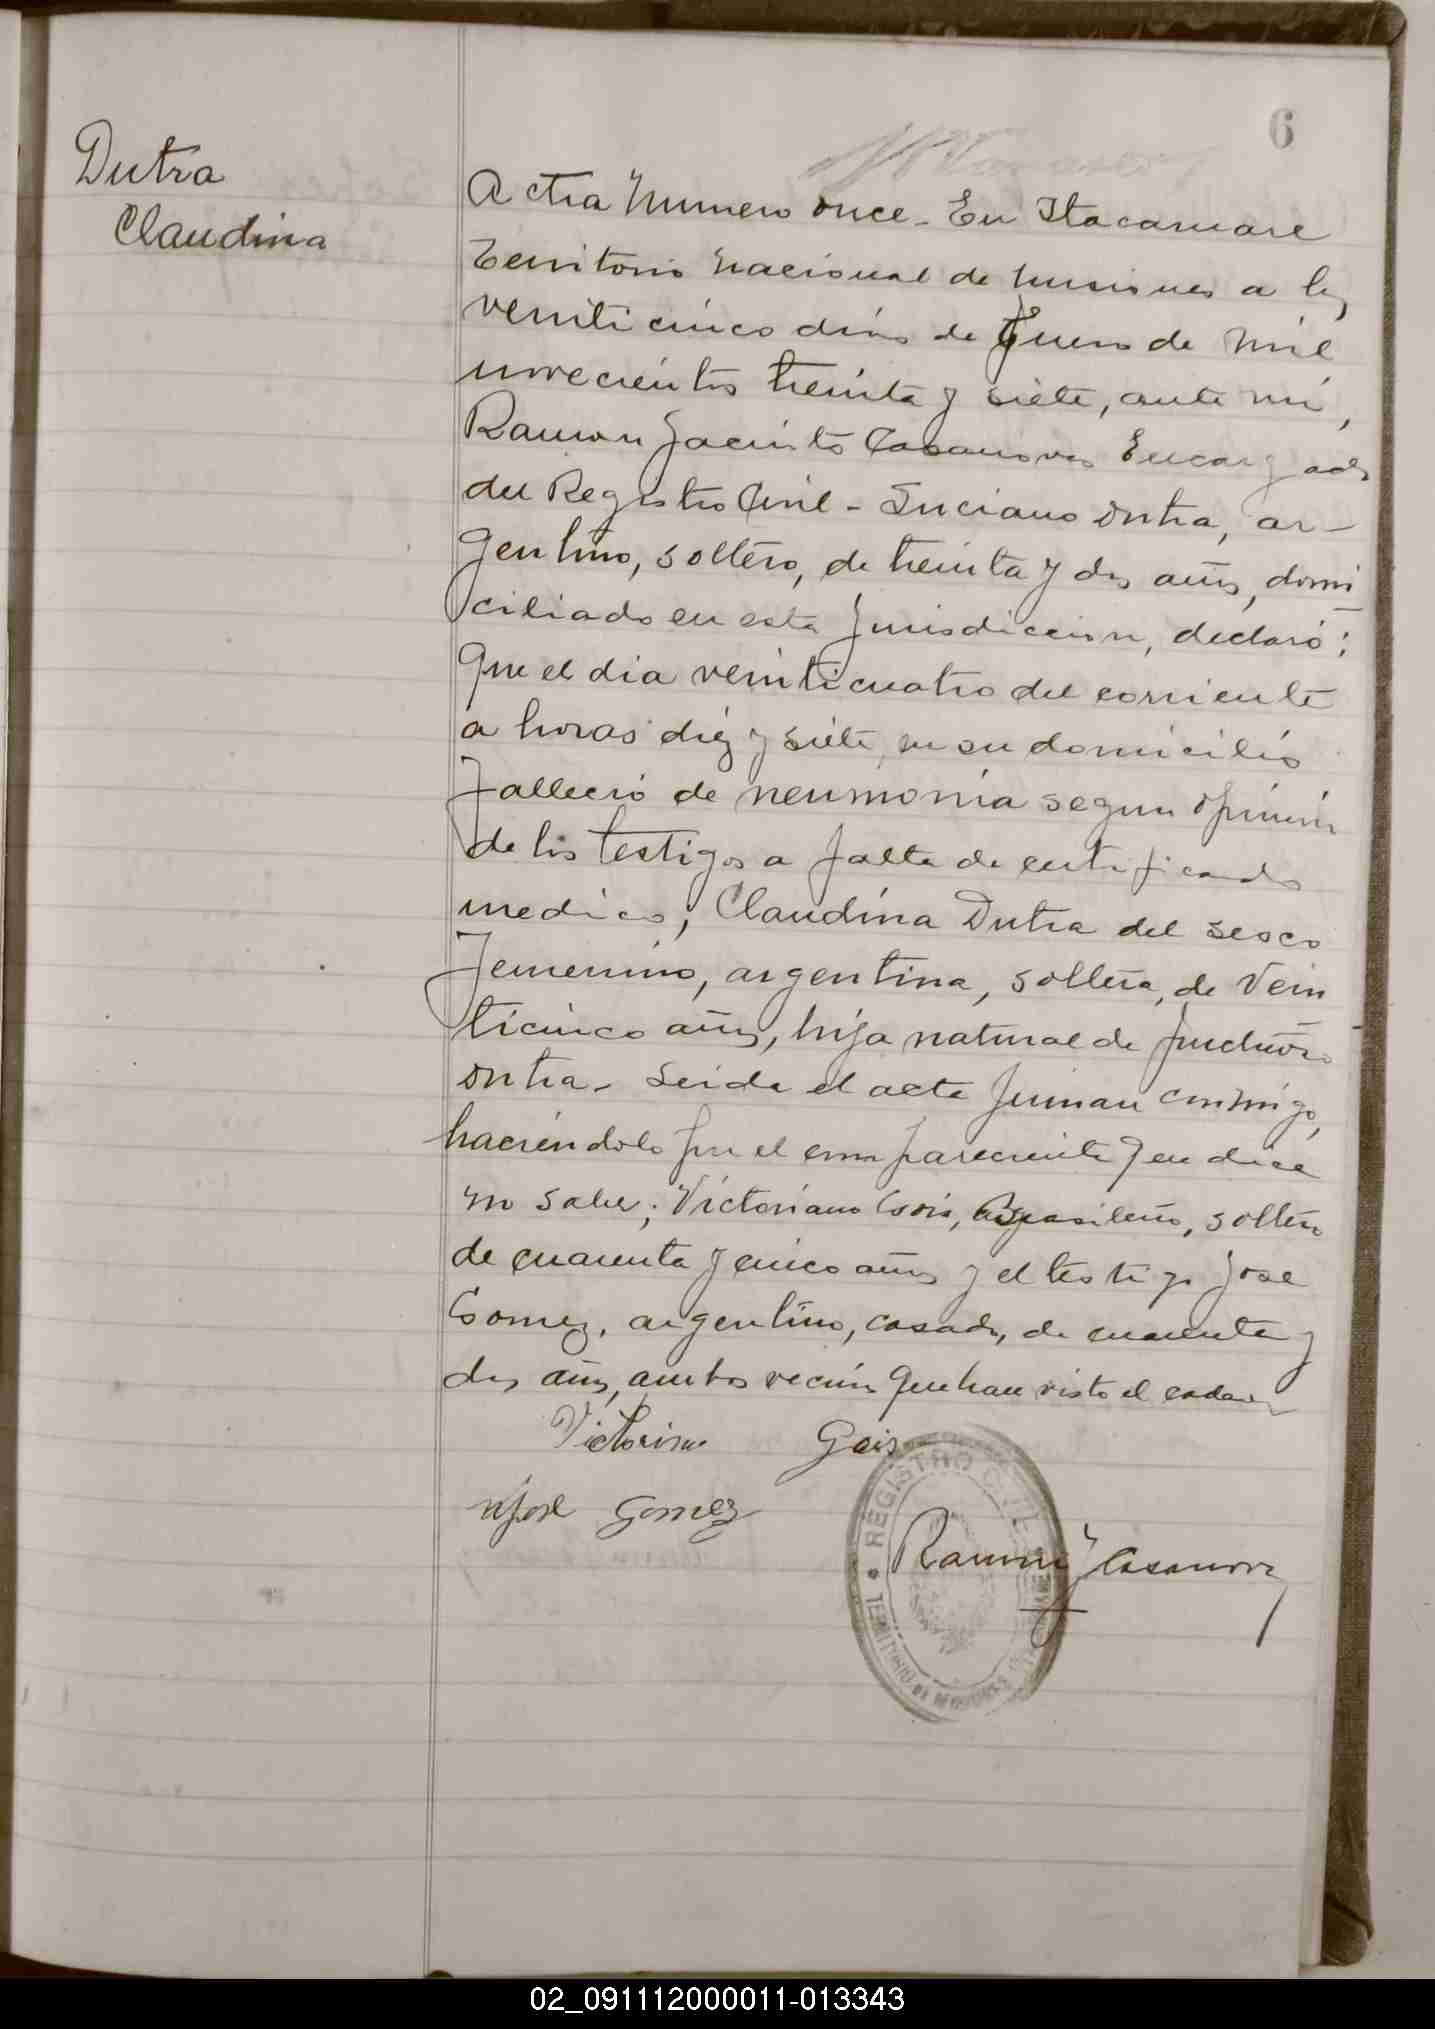 6
Dutra
Claudina
Acta Numero once - En Itacaruare
Territorio Nacional de Misiones a los
veinticinco dias de Enero de mil
novecientos treinta y siete, ante mi,
Ramon Jacinto Casanova Encargado
del Registro Civil - Luciano Dutra, ar-
gentino, soltero, de treinta y dos años, domi
ciliado en esta Jurisdiccion, declaró:
Que el dia veinticuatro del corriente
a horas diez y siete, en su domicilio
falleció de neumonia segun opinion
de los testigos a falta de certificado
medico, Claudina Dutra del sexo
femenino, argentina, soltera, de vein
ticinco años, hija natural de
Dutra - Leida el acta firman conmigo,
haciendolo por el compareciente que dice
no saber; Victoriano Gois, Brasileño, soltero
de cuarenta y cinco años y el testigo Jose
Gomez, argentino, casado, de cuarenta y
dos años, ambos vecinos que han visto el cadaver
Victorino Gois
Jose Gomez
Ramon J Casanova
REGISTRO CIVIL
TERRITORIO DE MISIONES
02_091112000011-013343